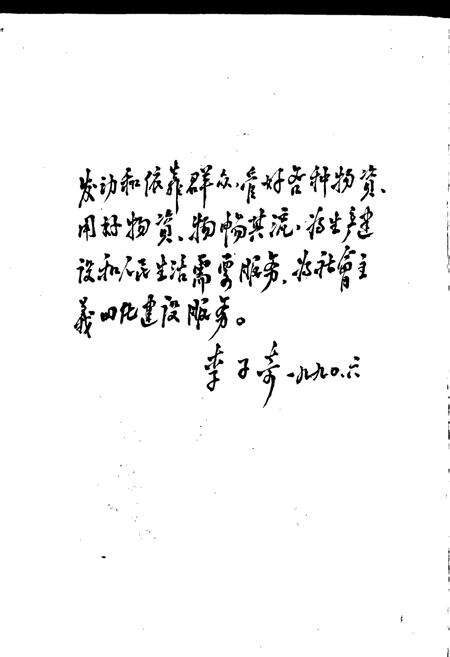 发动和依靠群众，管好各种物資、
用好物資、物畅其流，为生产建
设和人民生活需要服务，为社會主
義四化建设服务。
李子奇 一九九〇.六